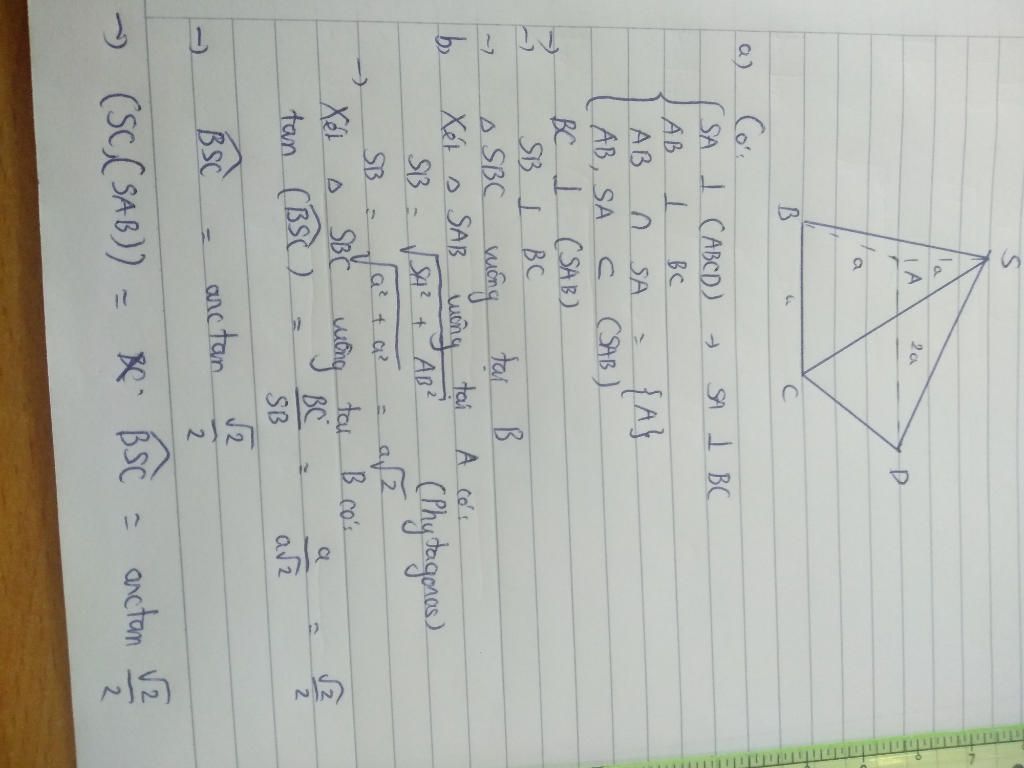 S
a
A
2a
D
a
B
a
C
a) Có:
SA ⊥ (ABCD) → SA ⊥ BC
AB ⊥ BC
AB ∩ SA = {A}
AB, SA ⊂ (SAB)
→ BC ⊥ (SAB)
→ SB ⊥ BC
→ Δ SBC vuông tại B
b, Xét Δ SAB vuông tại A có:
SB = √(SA² + AB²) (Phytagoras)
→ SB = √(a² + a²) = a√2
Xét Δ SBC vuông tại B có:
tan (BSC) = BC/SB = a/a√2 = √2/2
→ BSC = arctan √2/2
→ (SC,(SAB)) = BSC = arctan √2/2
7